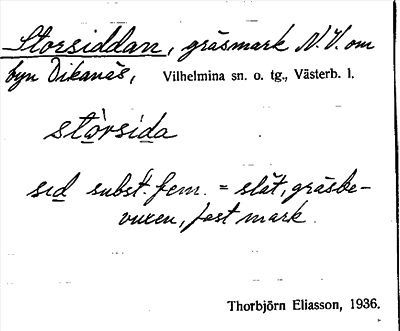 Storsiddan, gräsmark N.V. om
byn Dikanäs, Vilhelmina sn. o. tg., Västerb. l.
stòrsida
sid subst. fem. = slät, gräsbe-
vuxen, fast mark.
Thorbjörn Eliasson, 1936.